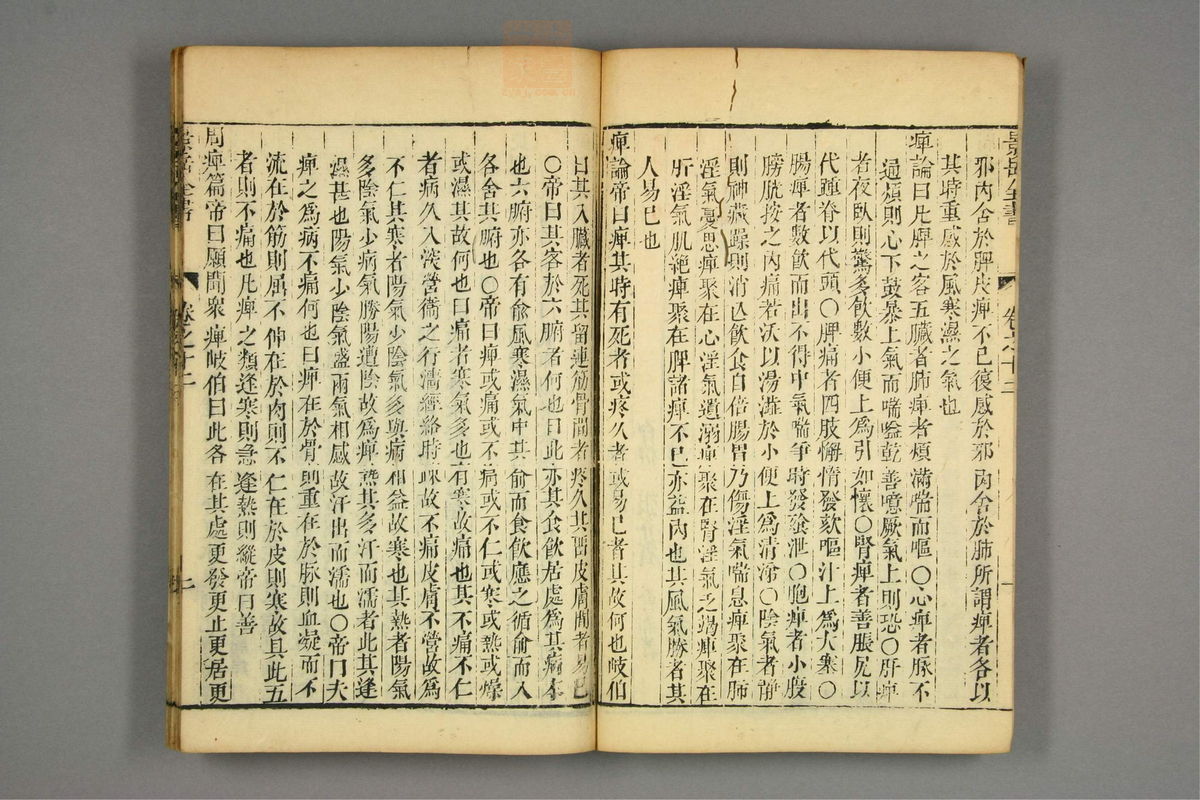 景岳全書 卷之十二
邪內舍於脾皮痺不已復感於邪內舍於肺所謂痺者各以
其時重感於風寒濕之氣也
痺論曰凡痺之客五臟者肺痺者煩滿喘而嘔〇心痺者脉不
通煩則心下鼓暴上氣而喘嗌乾善噫厥氣上則恐〇肝痺
者夜臥則驚多飲數小便上爲引如懷〇腎痺者善脹尻以
代踵脊以代頭〇脾痛者四肢懈惰發欬嘔汁上爲大寒〇
腸痺者數飲而出不得中氣喘爭時發飱泄〇胞痺者小腹
膀胱按之內痛若沃以湯澁於小便上爲清涕〇陰氣者靜
則神藏躁則消亾飲食自倍腸胃乃傷淫氣喘息痺聚在肺
淫氣憂思痺聚在心淫氣遺溺痺聚在腎淫氣乏竭痺聚在
肝淫氣肌絶痺聚在脾諸痺不已亦益內也其風氣勝者其
人易已也
痺論帝曰痺其時有死者或疼久者或易已者其故何也岐伯
曰其入臟者死其留連筋骨間者疼久其畱皮膚間者易已
〇帝曰其客於六腑者何也曰此亦其食飲居處爲其病本
也六腑亦各有俞風寒濕氣中其俞而食飲應之循俞而入
各舍其腑也〇帝曰痺或痛或不痛或不仁或寒或熱或燥
或濕其故何也曰痛者寒氣多也有寒故痛也其不痛不仁
者病久入深營衞之行濇經絡時疎故不痛皮膚不營故爲
不仁其寒者陽氣少陰氣多與病相益故寒也其熱者陽氣
多陰氣少病氣勝陽遭陰故爲痺熱其多汗而濡者此其逢
濕甚也陽氣少陰氣盛兩氣相感故汗出而濡也〇帝曰夫
痺之爲病不痛何也曰痺在於骨則重在於脉則血凝而不
流在於筋則屈不伸在於肉則不仁在於皮則寒故具此五
者則不痛也凡痺之類逢寒則急逢熱則縱帝曰善
周痺篇帝曰願聞衆痺岐伯曰此各在其處更發更止更居更
景岳全書 卷之十二 二